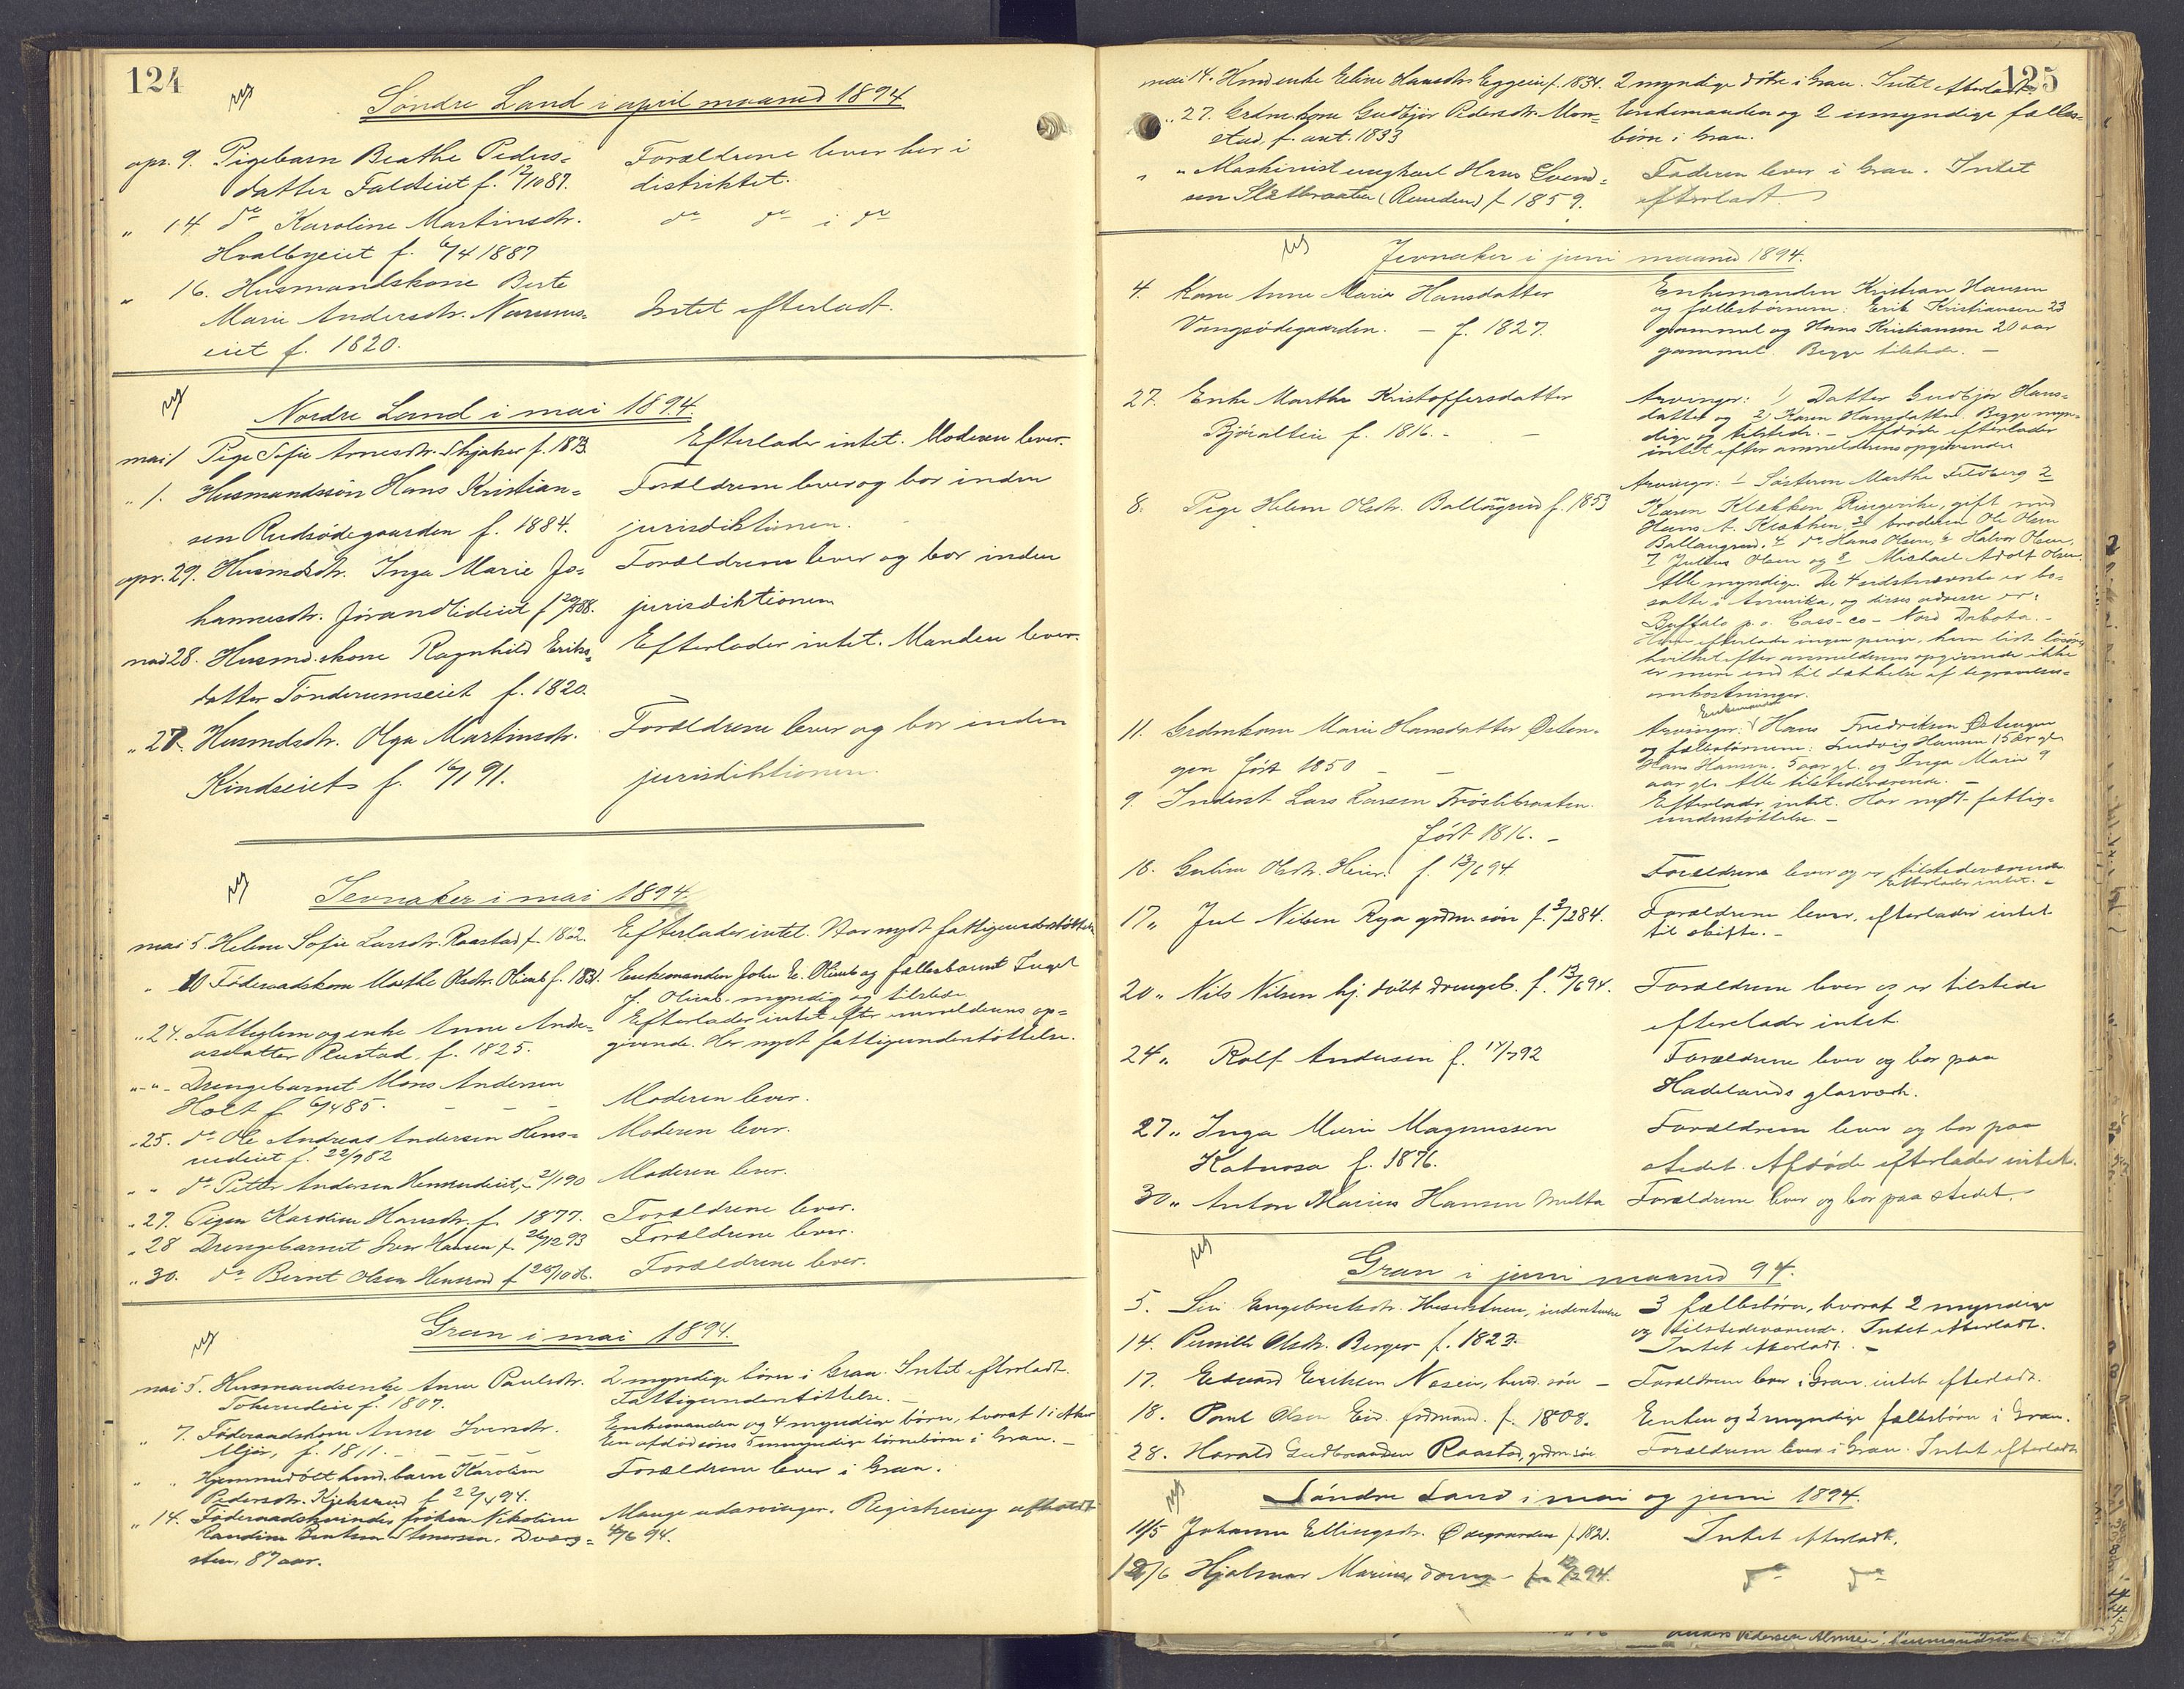 124
reg
Søndre Land i april maaned 1894
apr. 9. Pigebarn Beathe Peders=
datter Faldeiet f. 12/10 87.
Forældrene lever her i
distriktet.
" 14 do Karoline Martinsdtr.
Hvalbyeiet f. 6/4 1887
do do i do
" 16. Husmandskone Berte
Marie Andersdtr.
eiet f. 1820.
Intet efterladt.
reg
Nordre Land i mai 1894.
mai 1 Pige Sofie Arnesdtr. Skjaker f. 1873.
Efterlader intet. Moderen lever.
" 1. Husmandssøn Hans Kristian=
sen Rudsødegaarden f. 1884.
Forældrene lever og bor inden
jurisdiktionen.
apr. 29. Husmdsdtr. Inga Marie Jo=
hannesdtr. Jørandlideiet f. 88.
Forældrene lever og bor inden
jurisdiktionen
mai 28. Husmd.skone Ragnhild Eriks=
datter Tønderumseiet f. 1820.
Efterlader intet. Manden lever.
" 28. Husmdsdtr. Olga Martinsdtr.
Kindseiet f. 16/1 91.
Forældrene lever og bor inden
jurisdiktionen.
reg
Jevnaker i mai 1894.
mai 5. Helene Sofie Larsdtr. Raastad f. 1802.
Efterlader intet. Har nydt fattigunderstøttelse
" 10 Føderaadskone Marthe Olsdtr. Olimb f. 1831.
Enkemanden John E. Olimb og fællesbarnet Inget
J. Olimb. myndig og tilstede.
" 24. Fattiglem og enke Anne Ande=
asdatter Rustad, f. 1825.
Efterlader intet efter anmelderens op=
givende. Har nydt fattigunderstøttelse.
" - " - Drengebarnet Mons Andersen
Holt f. 6/4 85.
Moderen lever.
" 25. do Ole Andreas Andersen Hens=
rudeiet f. 22/9 82
Moderen lever.
" " do Petter Andersen Hensrudeiet, 21/1 90
Moderen lever.
" 27. Pigen Karoline Hansdtr. f. 1877.
Forældrene lever.
" 28 Drengebarnet Iver Hansen f. 26/12 93
Forældrene lever.
" 30. do Bernt Olsen Hensrud f. 26/10 86.
Forældrene lever.
reg
Gran i mai 1894.
mai 5. Husmandsenke Anne Paulsdtr.
Tokerudeie f. 1807.
2 myndige børn i Gran. Intet efterladt.
Fattigunderstøttelse.
" 7. Føderaadskone Anne Iversdtr.
Mjør, f. 1811.
Enkemanden og 4 myndige børn, hvoraf 1 i Aker
Een afdød søns 5 umyndige børnebørn i Gran.
" " Hjemmedøbt husd.barn Karoline
Pedersdtr. Kjeksrud f. 22/4 94.
Forældrene lever i Gran.
" 14. Føderaadskvinde, frøken Nikoline
Randine Bentsen Dværg=
sten. 87 aar.
Mange udarvinger. Registrering afholdt
4/6 94.
125
mai 14. Husd enke Eline Hansdtr. Eggeeie f. 1834.
2 myndige døtre i Gran. Intet efterladt.
" 27. Grdm.kone Gudbjør Pedersdtr. Mon=
stad, f. ant. 1833
Enkemanden og 2 umyndige fælles=
børn i Gran.
" " Maskinist ungkarl Hans Svend=
sen Slætbraaten (Randen) f. 1859.
Faderen lever i Gran. Intet
efterladt.
reg
Jevnaker i juni maaned 1894.
4. Kone Anne Marie Hansdatter
Vangsødegaarden. - f. 1827.
Enkemanden Kristian Hansen
og fællesbørnene: Erik Kristiansen 23
gammel og Hans Kristiansen 20 aar
gammel. Begge tilstede. -
27. Enke Marthe Kristoffersdatter
Bjøralteie f. 1816. -
Arvinger: 1) Datter Gudbjør Hans=
datter og 2) Karen Hansdatter. Begge myn=
dige og tilstede. - Afdøde efterlader
intet efter anmelderens opgivende
8. Pige Helene Olsdtr. Ballangrud f. 1853
Arvinger: 1 Søsteren Marthe Feldberg 2
Karen Klækken Ringerike, gift med
Hans A. Klækken, 3 broderen Ole Olsen
Ballangrud, 4 do Hans Olsen, 5 Halvor Olsen,
7 Julius Olsen og 8 Michael Adolf Olsen.
Alle myndige. De 4 sidstnævnte er bo=
satte i Amerika, og disses adresse er:
Buffalo p.o. Cass-co - Nord Dakota. -
Hun efterlader ingen penge, kun lidt løsøre,
hvilket efter anmelderens opgivende ikke
er mere end til dækkelse af begravelses=
omkostninger.
11. Grdmkone Marie Hansdatter Østen=
gen født 1850
Enkemand
Arvinger: Hans Fredriksen Østengen
og fællesbørnene: Ludvig Hansen 15 aar gl.
Hans Hansen, 5 aar gl. og Inga Marie 9
aar gl. Alle tilstedeværende. -
9. Inderst Lars Larsen Frøslibraaten.
født 1816. -
Efterlader intet. Har nydt fattig=
understøttelse. -
16. Guline Olsdtr. Heier. f. 13/6 94.
Forældrene lever og er tilstedeværende
Efterlader intet. -
17 " Jul Nilsen Rya grdm. søn f. 3/2 84.
Forældrene lever, efterlader intet
til skifte. -
20 " Nils Nilsen hj. døbt drengeb. f. 13/6 94.
Forældrene lever og er tilstede
efterlader intet.
24 " Rolf Andersen f. 17/7 92
Forældrene lever og bor paa
Hadelands glasværk.
27 " Inga Marie Magnussen
Katnosa f. 1876.
Forældrene lever og bor paa
stedet. Afdøde efterlader intet.
30 " Anton Marius Hansen Mutta
Forældrene lever og bor paa stedet. -
reg
Gran i juni maaned 94.
5. Siri Engebretsdtr. Huserstuen,
3 fællesbørn, hvoraf 2 myndige
og tilstedeværende. Intet efterladt.
14. Pernille Olsdtr. Berger f. 1823.
Intet efterladt. -
17. Edvard Eriksen Noseie, husd. søn -
Forældrene lever i Gran. intet efterladt.
18. Poul Olsen Eid. fødmand. f. 1808.
Enken og 2 myndige fællesbørn i Gran.
28. Harald Gudbrandsen Raastad, grdm. søn
Forældrene lever i Gran. Intet efterladt
reg
Søndre Land i mai og juni 1894.
11/5 Johanne Ellingsdtr. Ødegaarden f. 1821.
Intet efterladt.
12/6 Hjalmar Marius, dreng - f. 94.
do do